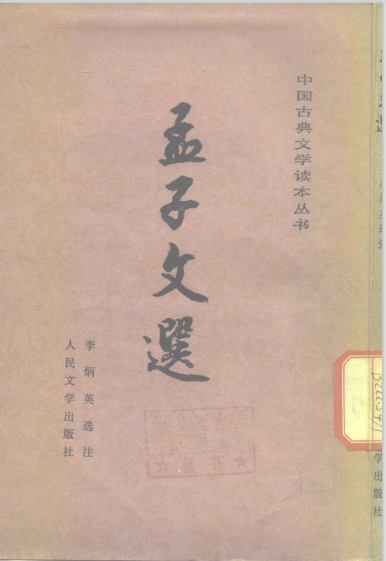 中国古典文学读本丛书
孟子文選
李炳英选注
人民文学出版社
学出版社